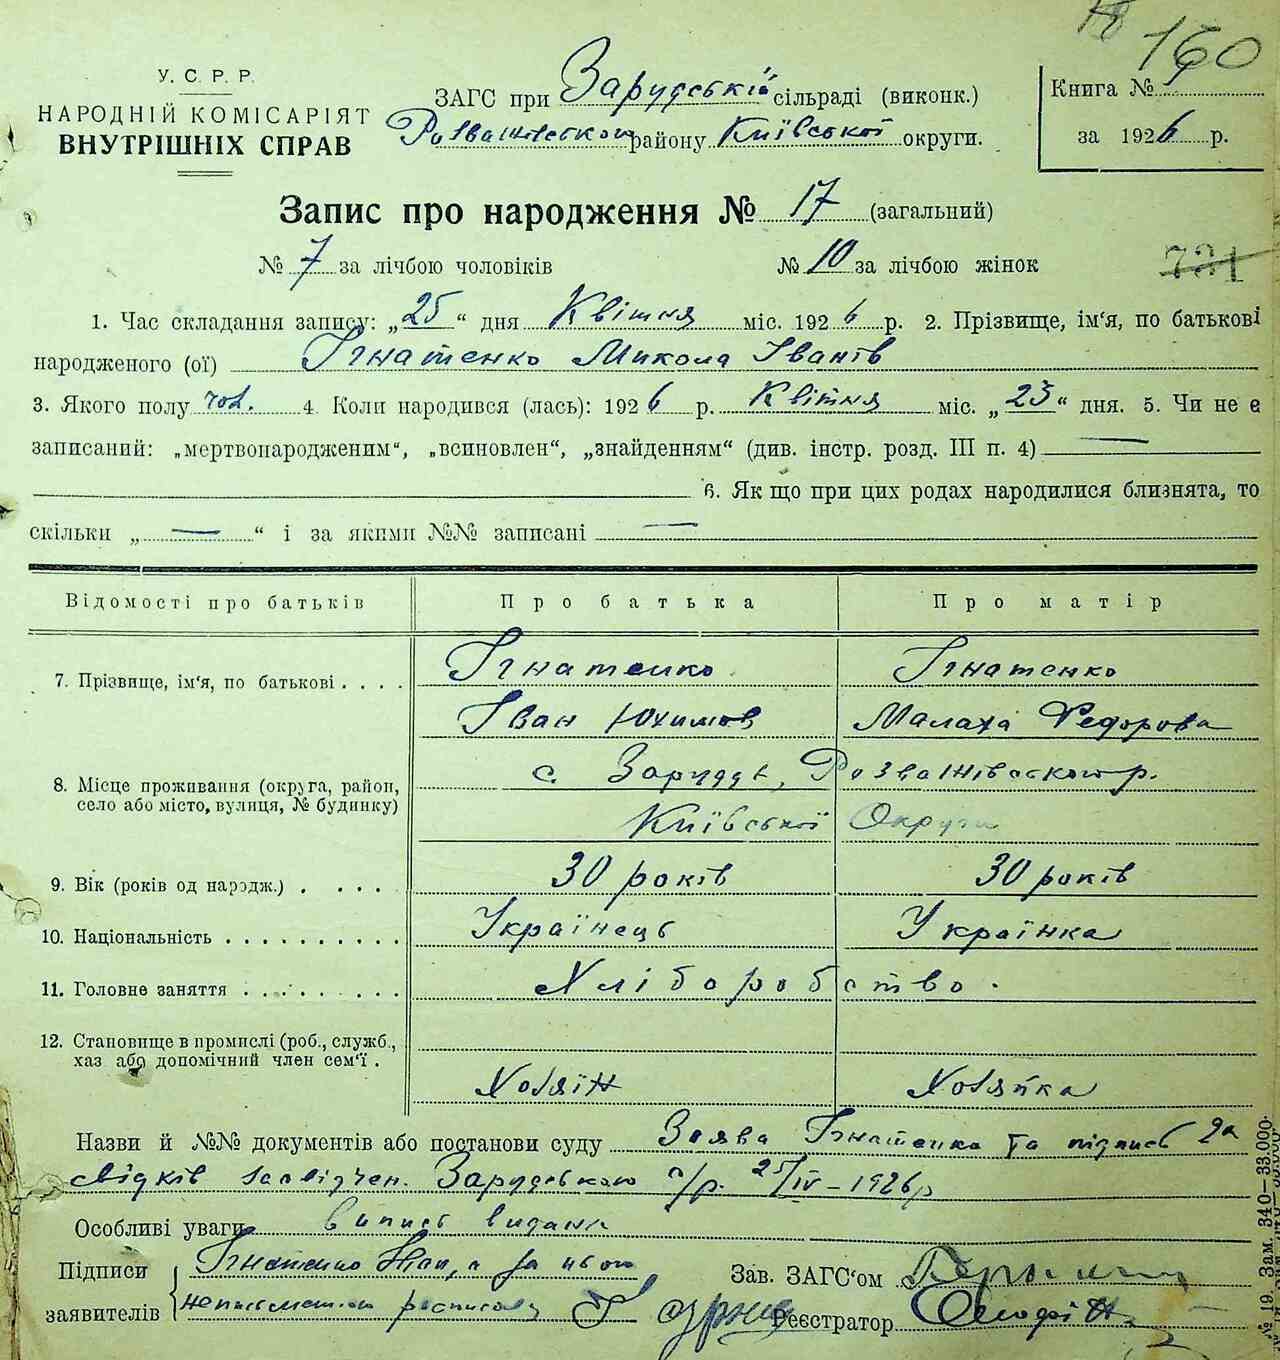 160
У. С. Р. Р.
НАРОДНІЙ КОМІСАРІЯТ
ВНУТРІШНІХ СПРАВ
ЗАГС при Зарудській сільраді (виконк.)
Розважівсвком району Київської округи.
Книга №
за 1926 р.
Запис про народження № 17 (загальний)
№ 7 за лічбою чоловіків № 10 за лічбою жінок
731
1. Час складання запису: „25“ дня Квітня міс. 1926 р. 2. Прізвище, ім‘я, по батькові
народженого (ої) Ігнатенко Микола Іванів
3. Якого полу чол. 4. Коли народився (лась): 1926 р. Квітня міс. „23“ дня. 5. Чи не є
записаний: „мертвонародженим“, „всиновлен“, „знайденням“ (див. інстр. розд. III п. 4) —
6. Як що при цих родах народилися близнята, то
скільки „—“ і за якими №№ записані —
Відомості про батьків Про батька Про матір
7. Прізвище, ім‘я, по батькові . . . . Ігнатенко Ігнатенко
Іван Юхимов Малаха Федорова
8. Місце проживання (округа, район, село або місто, вулиця, № будинку) с. Заруддя, Розважівського р.
Київської Округи
9. Вік (років од народж.) . . . . 30 років 30 років
10. Національність . . . . . . . . . . Українець Українка
11. Головне заняття . . . . . . . . Хліборобство.
12. Становище в промислі (роб., служб., хаз або допомічний член сем‘ї .
Хозяїн Хозяйка
Назви й №№ документів або постанови суду Заява Ігнатенка та підпис 2х
свідків засвідчен. Зарудською с/р. 25/IV – 1926р
Особливі уваги випись видана
Підписи заявителів Ігнатенко Іван, а за його
неписьменного росписовся
Зав. ЗАГС‘ом
Реєстратор
№ 19. Зам. 340—33.000.